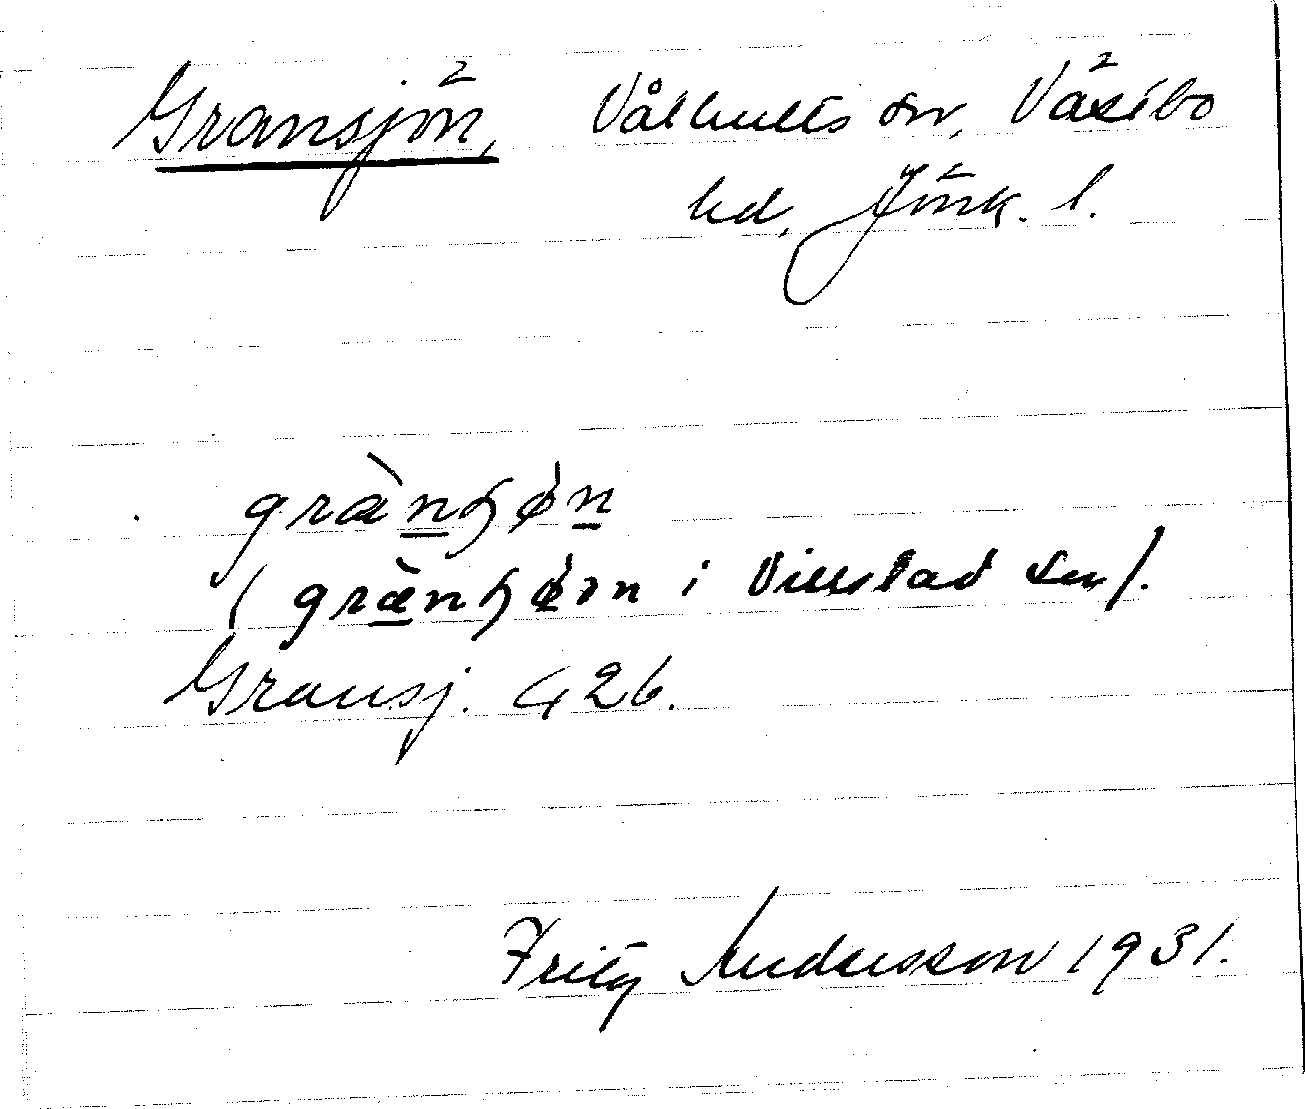 Gransjön, Våthults sn, Västbo
hd, Jönk. l.
grànɧǿn
(græ̀nɧǿən i Villstad sn).
Gransj. 426.
Fritz Andersson 1931.